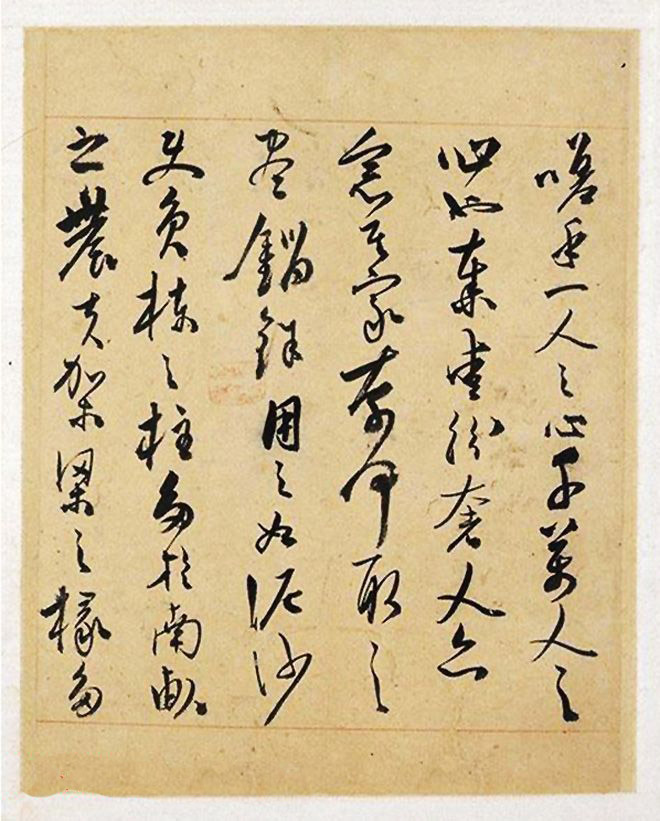 嗟乎一人之心千萬人之
心也秦愛紛奢人亦
念其家奈何取之
盡錙銖用之如泥沙
使負棟之柱多於南畝
之農夫架梁之椽多